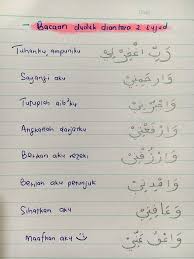 - Bacaan duduk diantara 2 sujud -
Tuhanku ampuniku رَبِّ اغْفِرْلِيْ
Sayangi aku وَارْحَمْنِيْ
Tutuplah aib²ku وَاجْبُرْنِيْ
Angkatlah darjatku وَارْفَعْنِيْ
Berikan aku rezeki وَارْزُقْنِيْ
Berilah aku petunjuk وَاهْدِنِيْ
Sihatkan aku وَعَافِنِيْ
Maafkan aku وَاعْفُ عَنِّيْ